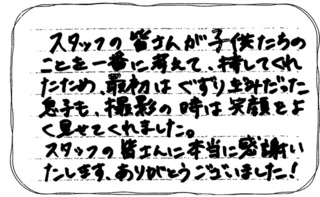 スタッフの皆さんが子供たちの
ことを一番に考えて、接してくれ
たため、最初はぐずり気みだった
息子も、撮影の時は笑顔をよ
く見せてくれました。
スタッフの皆さんに本当に感謝い
たします、ありがとうございました！